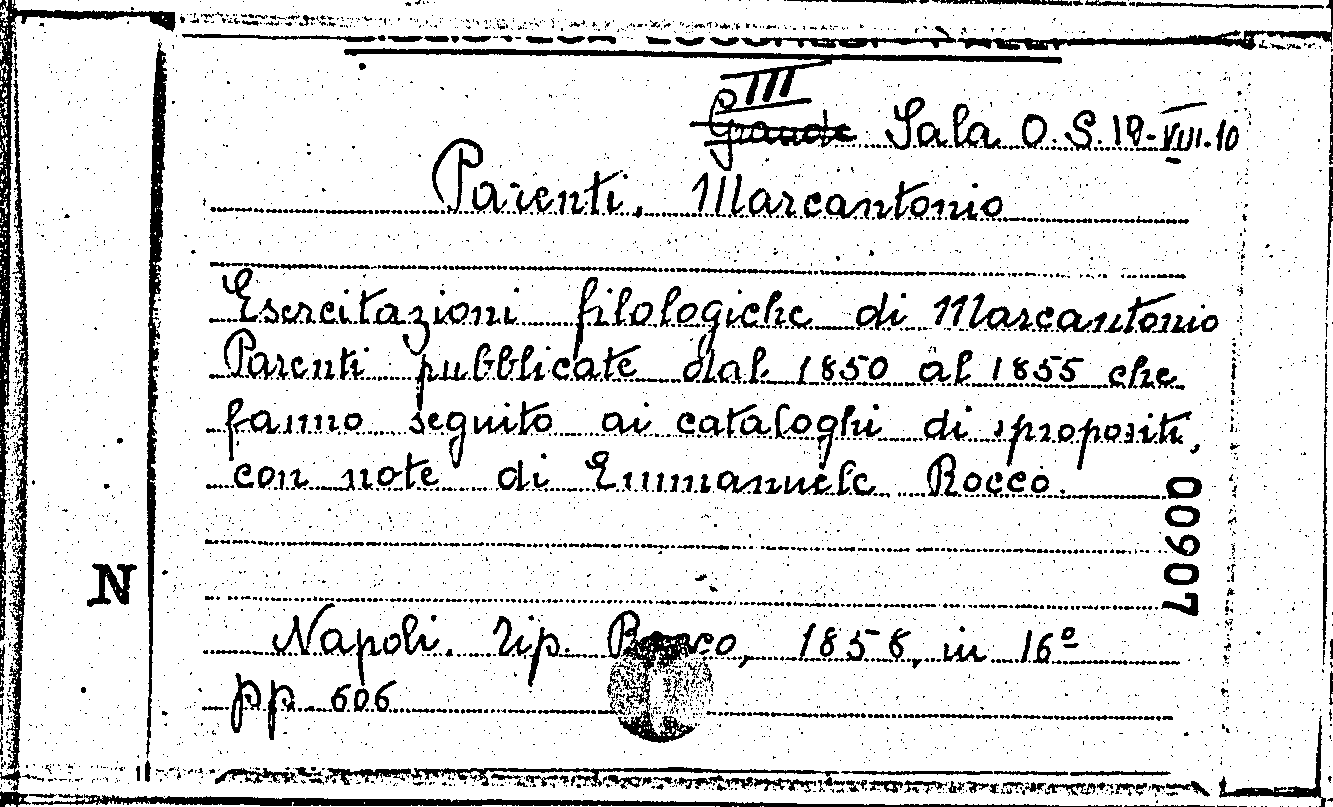 III
Grande Sala O.S.18-VIII.10
Parenti, Marcantonio
Esercitazioni filologiche di Marcantonio
Parenti pubblicate dal 1850 al 1855 che
fanno seguito ai cataloghi di spropositi,
con note di Emmanuele Rocco.
00907
N
Napoli. Tip. 1858, in 16º
pp. 606